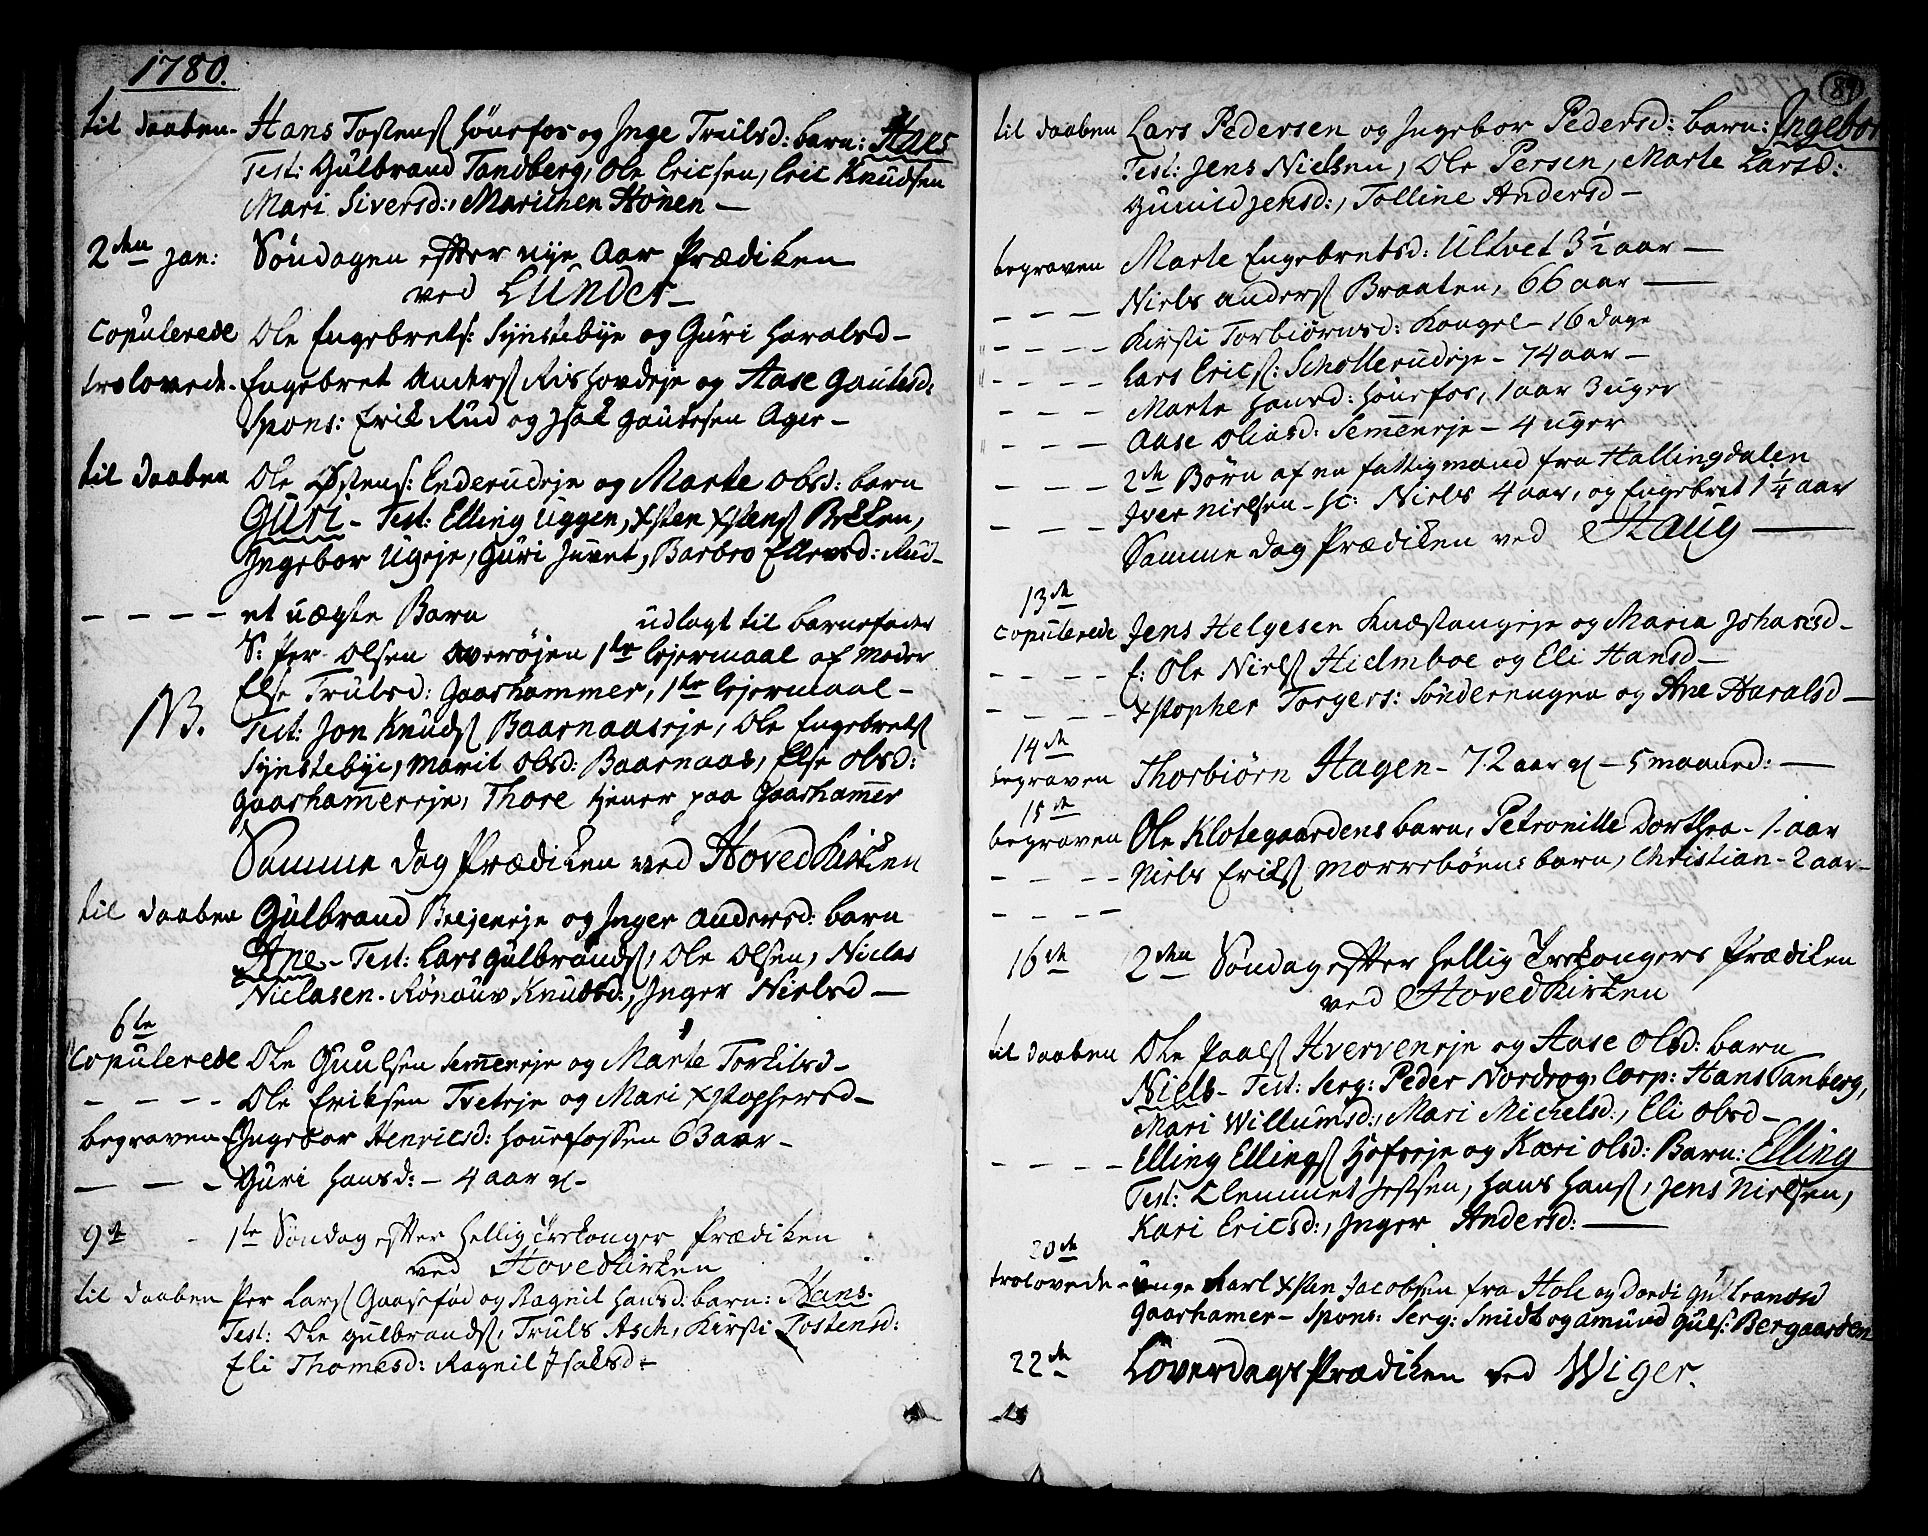 1780.
til daaben - Hans Tostens Hönefos og Inge Trulsd: barn: Haes
Test: Gulbrand Tandberg, Ole Ericsen, Eric Knudsen
Mari Siversd:, Marichen Hönen —
2den Jan: Söndagen efter nye Aar Prædiken
ved Lunder —
Copulerede Ole Engebrets: Synstebye og Guri Haralsd —
trolovede - Engebret Anders Rishovdeje og Aase Gautesd:
Spons: Erik Rud og Isak Gautesen Ager —
til daaben Ole Østens: Enderudeje og Marte Olsd: barn
Guri - Test: Elling Uggen, Xsten Xstens Breken,
Ingebor Ugeje, Guri Juvet, Barbro Ellevsd: Rud -
— — — — et uægte Barn udlagt til barnefader
S: Per Olsen Averøjen 1ste lejermaal af moder
Else Trulsd: Gaarhammer, 1ste lejermaal -
NB. Test: Jon Knuds Baarnaaseje, Ole Engebrets
Synstebye, Marit Olsd: Baarnaas, Else Olsd:
Gaarhammereje, Thore tjener paa Gaarhammer
Samme dag Prædiken ved HovedKirken
til daaben Gulbrand Beljeneje og Inger Andersd: barn
Ane - Test: Lars Gulbrands, Ole Olsen, Niclas
Niclasen. Rönauv Knudsd:, Inger Nielsd —
6te
Copulerede Ole Guulsen Semeneje og Marte Torkilsd —
— — — — Ole Eriksen Tveteje og Mari Xstophersd —
begraven - Ingebor Henricsd: Hönefossen 63 aar —
— — — Guri Hansd: — 4 aar
9de 1ste Söndag efter Hellig Trekonger Prædiken
ved HovedKirken
til daaben Per Lars Gaasefød og Ragnil Hansd: barn: Hans.
Test: Ole Gulbrands, Truls Asch, Kirsti Tostensd:
Eli Thomesd: Ragnil Isaksd —
89
til daaben Lars Pedersen og Ingebor Pedersd: barn: Ingebor
Test: Jens Nielsen, Ole Persen, Marte Larsd:
Gunild Jensd:, Tolline Andersd —
begraven Marte Engebretsd: Ultvet 3 ½ aar —
— — — — Niels Anders Braaten, 66 aar —
— — — — Kirsti Torbiörnsd: Kongel — 16 dage
— — — — Lars Erics: Schollerudeje — 74 aar —
— — — Marte Hansd: Hönefos, 1 aar 3 uger
— — — — Aase Oliasd: Semeneje — 4 uger
— — — — 2de Börn af en fattig mand fra Hallingdalen
— — — Iver Nielsen - sc: Niels 4 aar, og Engebret 1 ¼ aar
Samme dag Prædiken ved Haug —
13de
Copulerede Jens Helgesen Knæstangeje og Maria Johansd —
— — — — f: Ole Niels Hielmboe og Eli Hansd —
— — — — Xstopher Torgers: Sönderengen og Ane Haralsd —
14de
begraven Thorbiörn Hagen — 72 aar 5 maaned: —
15de
begraven Ole Klotegaardens barn, Petronille Dorthea - 1 - aar
— — — — Niels Eriks Morreböens barn, Christian - 2 aar —
— — — —
16de 2den Söndag efter Hellig Trekongers Prædiken
ved HovedKirken
til daaben Ole Paals Hverveneje og Aase Olsd: barn
Niels — Test: Serg: Peder Nordrog, Corp: Hans Tanberg,
Mari Willumsd:, Mari Michelsd:, Eli Olsd —
— — — — Elling Ellings Hofseje og Kari Olsd: Barn: Elling
Test: Clemmet Jessen, Hans Hans, Jens Nielsen,
Kari Ericsd:, Inger Andersd: —
20de
trolovede - unge Karl Xsten Jacobsen fra Hole og Dordi Gulbransd
Gaarhamer — Spons: Serg: Smidt og Amund Guls: Bergaarden
22de Löverdags Prædiken ved Wiger.